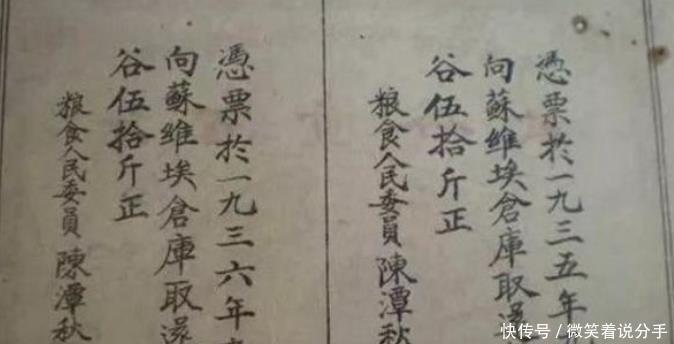 憑票於一九三五年
向蘇維埃倉庫取還
谷伍拾斤正
粮食人民委員 陳潭秋
憑票於一九三六年
向蘇維埃倉庫取還
谷伍拾斤正
粮食人民委員 陳潭秋
快传号/微笑着说分手